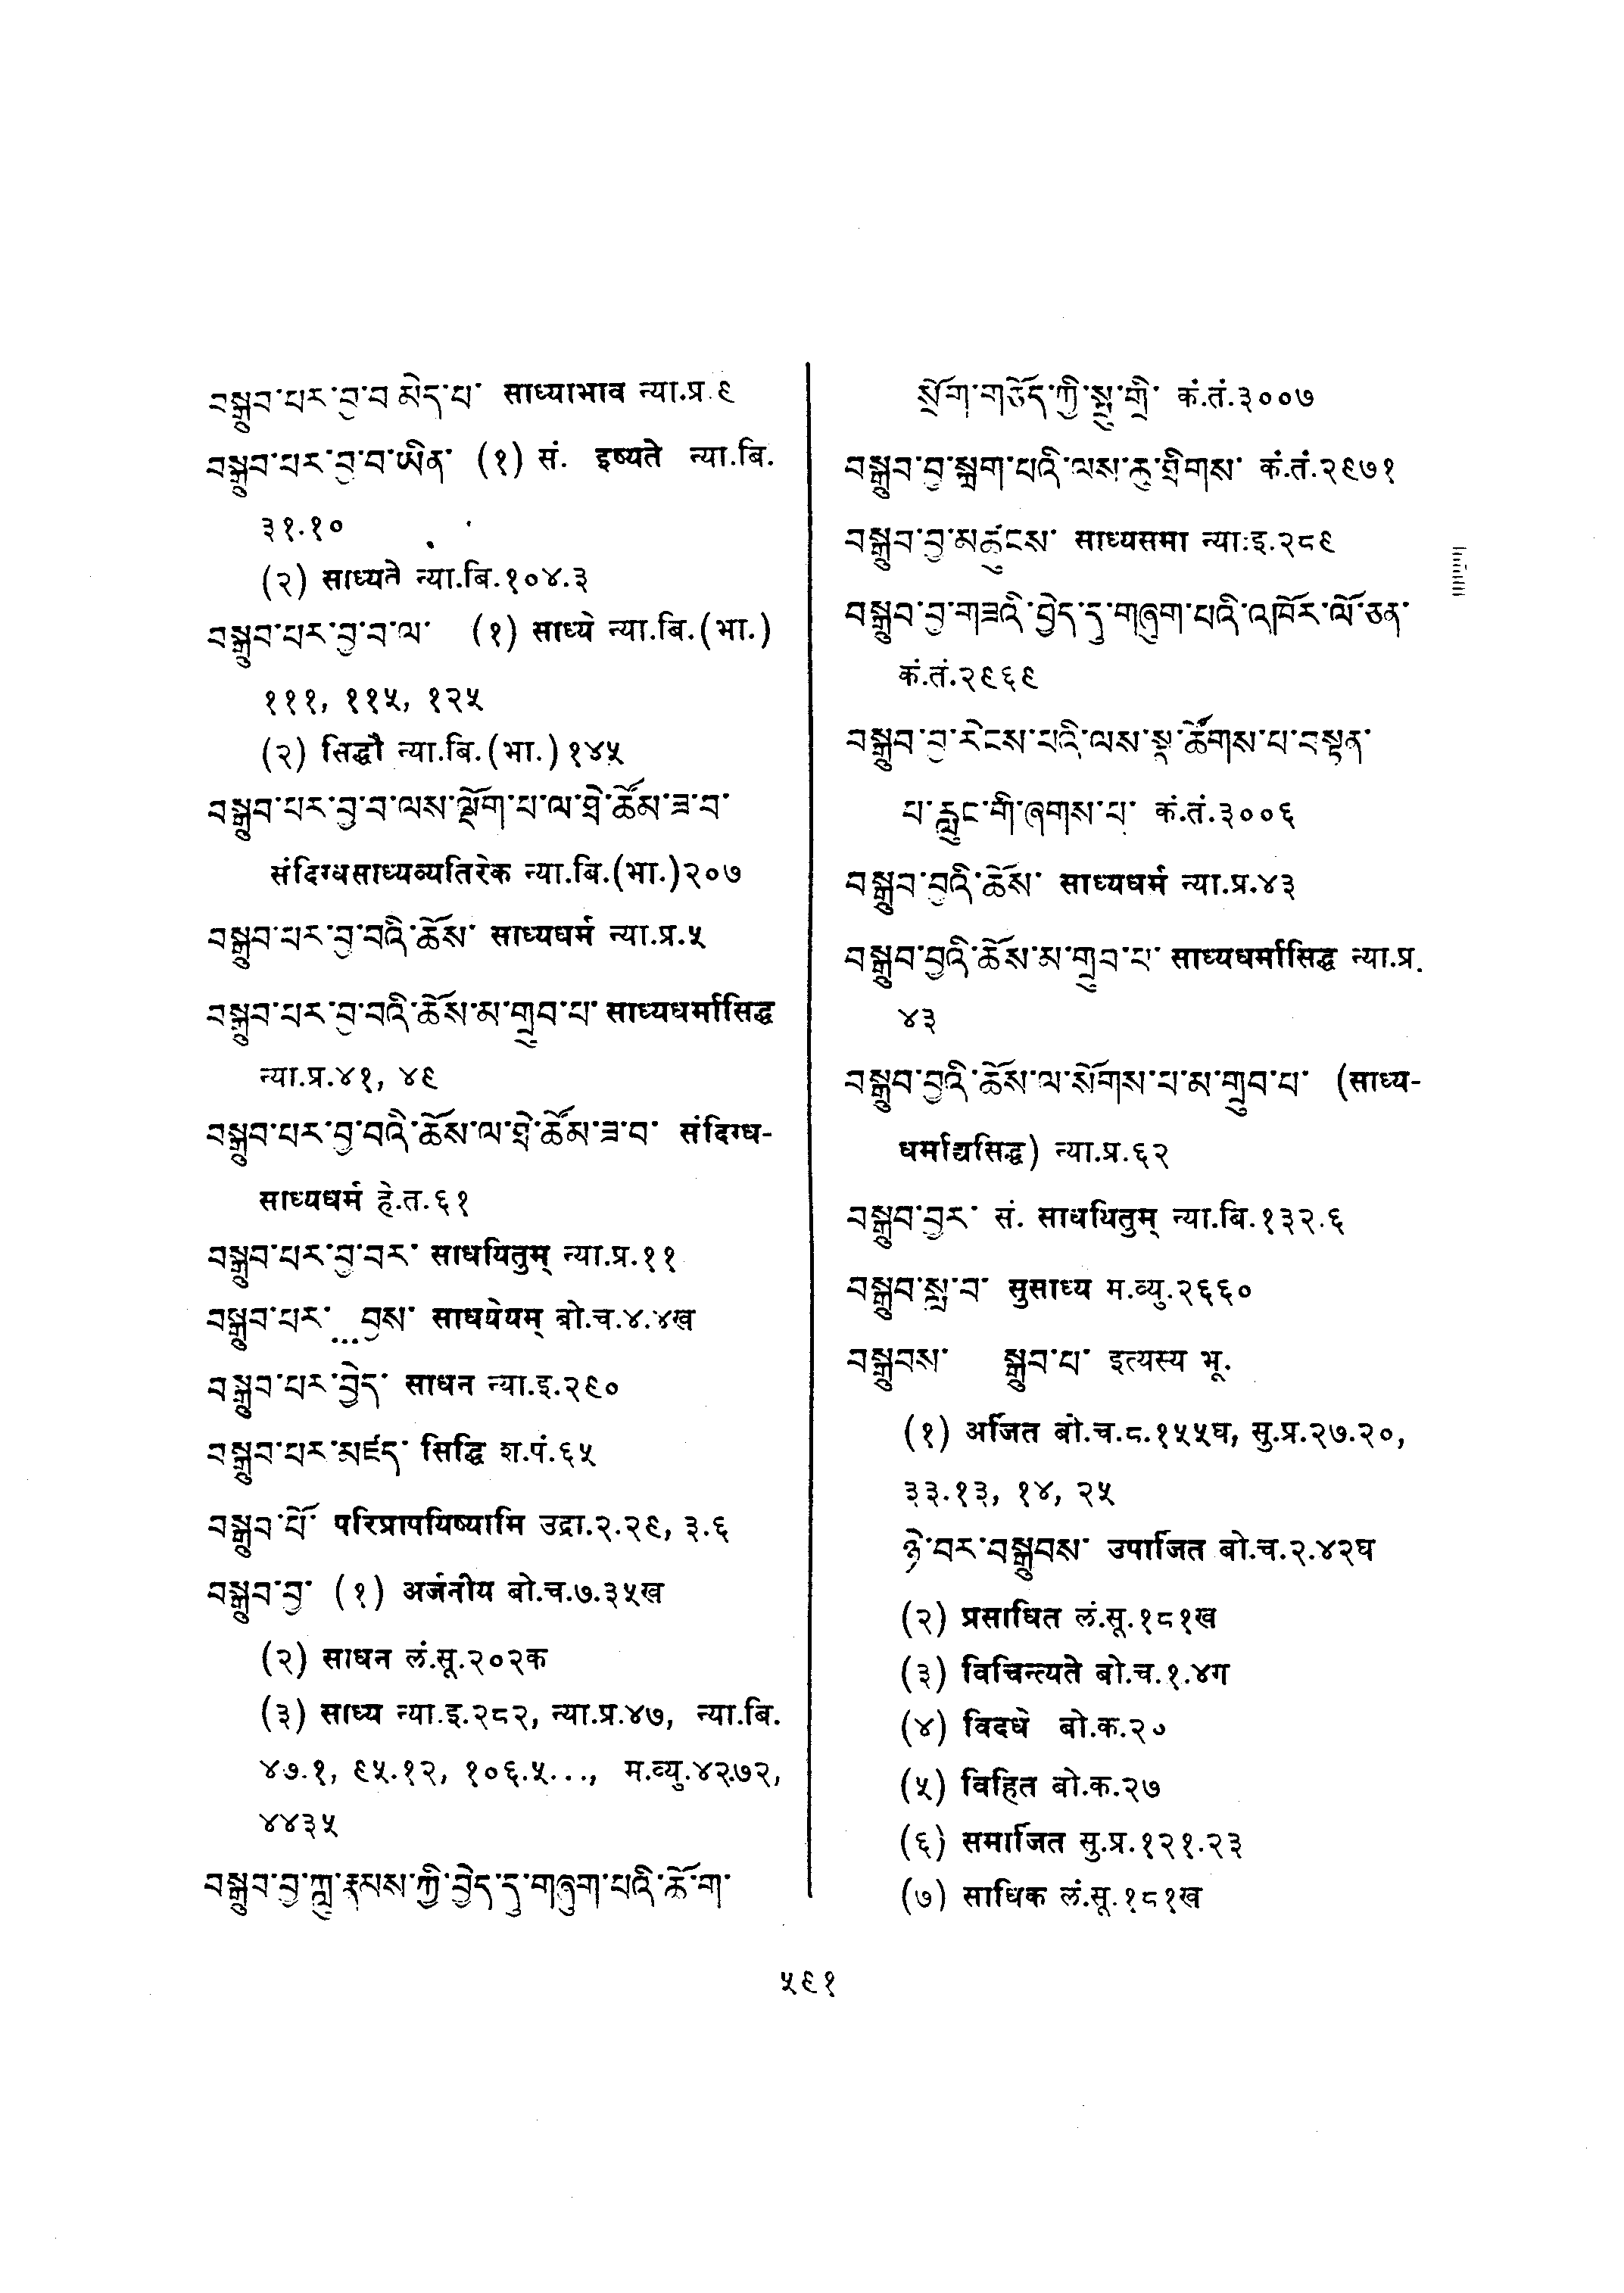 བསྒྲུབ་པར་བྱ་བ་མེད་པ་ साध्याभाव न्या.प्र.९
བསྒྲུབ་པར་བྱ་བ་ཡིན་ (१) सं. इष्यते न्या.बि.
३१.१०
(२) साध्यते न्या.बि.१०४.३
བསྒྲུབ་པར་བྱ་བ་ལ་ (१) साध्ये न्या.बि.(भा.)
१११, ११५, १२५
(२) सिद्धौ न्या.बि.(भा.)१४५
བསྒྲུབ་པར་བྱ་བ་ལས་ལྡོག་པ་ལ་ཐེ་ཚོམ་ཟ་བ་
संदिग्धसाध्यव्यतिरेक न्या.बि.(भा.)२०७
བསྒྲུབ་པར་བྱ་བའི་ཆོས་ साध्यधर्म न्या.प्र.५
བསྒྲུབ་པར་བྱ་བའི་ཆོས་མ་གྲུབ་པ་ साध्यधर्मासिद्ध
न्या.प्र.४१, ४९
བསྒྲུབ་པར་བྱ་བའི་ཆོས་ལ་ཐེ་ཚོམ་ཟ་བ་ संदिग्ध-
साध्यधर्म हे.त.६१
བསྒྲུབ་པར་བྱ་བར་ साधयितुम् न्या.प्र.११
བསྒྲུབ་པར་...བྱས་ साधयेयम् बो.च.४.४ख
བསྒྲུབ་པར་བྱེད་ साधन न्या.इ.२९०
བསྒྲུབ་པར་མཛད་ सिद्धि श.पं.६५
བསྒྲུབ་པོ་ परिप्रापयिष्यामि उद्रा.२.२९, ३.६
བསྒྲུབ་བྱ་ (१) अर्जनीय बो.च.७.३५ख
(२) साधन लं.सू.२०२क
(३) साध्य न्या.इ.२८२, न्या.प्र.४७, न्या.बि.
४७.१, ९५.१२, १०६.५..., म.व्यु.४२७२,
४४३५
བསྒྲུབ་བྱ་ཀླུ་རྣམས་ཀྱི་བྱེད་དུ་གཞུག་པའི་ཆོ་ག་
སྲོག་གཅོད་ཀྱི་སྤུ་གྲི་ कं.तं.३००७
བསྒྲུབ་བྱ་སྐྲག་པའི་ལས་རུ་ཐྲིགས་ कं.तं.२९७१
བསྒྲུབ་བྱ་མཚུངས་ साध्यसमा न्या:इ.२८९
བསྒྲུབ་བྱ་གཟའི་བྱེད་དུ་གཞུག་པའི་འཁོར་ལོ་ཅན་
कं.तं.२९६९
བསྒྲུབ་བྱ་རེངས་པའི་ལས་སྣ་ཚོགས་པ་བསྟན་
པ་རླུང་གི་ཞགས་པ་ कं.तं.३००६
བསྒྲུབ་བྱའི་ཆོས་ साध्यधर्म न्या.प्र.४३
བསྒྲུབ་བྱའི་ཆོས་མ་གྲུབ་པ་ साध्यधर्मासिद्ध न्या.प्र.
४३
བསྒྲུབ་བྱའི་ཆོས་ལ་སོགས་པ་མ་གྲུབ་པ་ (साध्य-
धर्माद्यसिद्ध) न्या.प्र.६२
བསྒྲུབ་བྱར་ सं. साधयितुम् न्या.बि.१३२.६
བསྒྲུབ་སླ་བ་ सुसाध्य म.व्यु.२६६०
བསྒྲུབས་ སྒྲུབ་པ་ इत्यस्य भू.
(१) अर्जित बो.च.८.१५५घ, सु.प्र.२७.२०,
३३.१३, १४, २५
ཉེ་བར་བསྒྲུབས་ उपार्जित बो.च.२.४२घ
(२) प्रसाधित लं.सू.१८१ख
(३) विचिन्त्यते बो.च.१.४ग
(४) विदधे बो.क.२०
(५) विहित बो.क.२७
(६) समार्जित सु.प्र.१२१.२३
(७) साधिक लं.सू.१८१ख
५९१